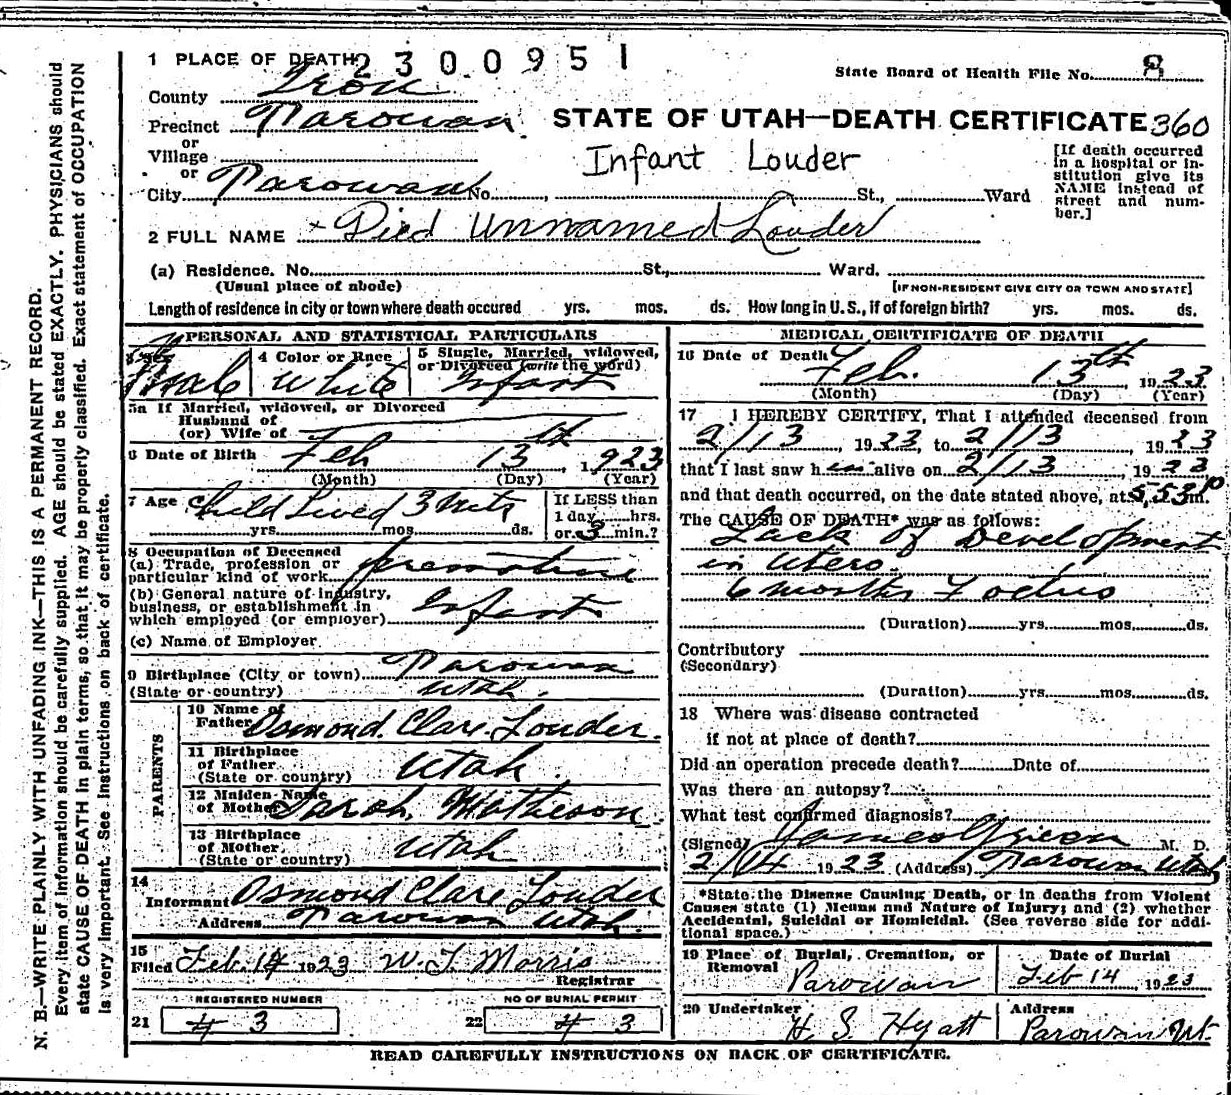 1 PLACE OF DEATH 2300951
State Board of Health File No. 8
County Iron
Precinct Parowan
STATE OF UTAH—DEATH CERTIFICATE 360
or
Village
or
Infant Louder
[If death occurred
in a hospital or in-
stitution give its
NAME instead of
street and num-
ber.]
City Parowan No. , St., Ward
2 FULL NAME Died Unnamed Louder
(a) Residence. No. St., Ward.
(Usual place of abode) [IF NON-RESIDENT GIVE CITY OR TOWN AND STATE]
Length of residence in city or town where death occured yrs. mos. ds. How long in U.S., if of foreign birth? yrs. mos. ds.
PERSONAL AND STATISTICAL PARTICULARS
3 Sex Male
4 Color or Race White
5 Single, Married, widowed,
or Divorced (write the word)
Infant
5a If Married, widowed, or Divorced
Husband of
(or) Wife of
6 Date of Birth Feb 13th, 1923
(Month) (Day) (Year)
7 Age Child Lived 3 Mts
yrs. mos. ds.
If LESS than
1 day hrs.
or 3 min.?
8 Occupation of Deceased
(a) Trade, profession or
particular kind of work premature
(b) General nature of industry,
business, or establishment in
which employed (or employer) Infant
(c) Name of Employer
9 Birthplace (City or town) Parowan
(State or country) Utah.
PARENTS
10 Name of
Father Osmond Clare Louder.
11 Birthplace
of Father
(State or country) Utah.
12 Maiden Name
of Mother Sarah Matheson.
13 Birthplace
of Mother
(State or country) Utah
14
Informant Osmond Clare Louder
Address Parowan Utah.
15
Filed Feb. 14 1923 W. T. Morris
Registrar
REGISTERED NUMBER
21 # 3
NO OF BURIAL PERMIT
22 # 3
MEDICAL CERTIFICATE OF DEATH
16 Date of Death Feb. 13th, 1923
(Month) (Day) (Year)
17 I HEREBY CERTIFY, That I attended deceased from
2/13, 1923, to 2/13, 1923
that I last saw h im alive on 2/13, 1923
and that death occurred, on the date stated above, at 5,53 p m.
The CAUSE OF DEATH* was as follows:
Lack of Development
in Utero.
6 months Foetus
(Duration) yrs. mos. ds.
Contributory
(Secondary)
(Duration) yrs. mos. ds.
18 Where was disease contracted
if not at place of death?
Did an operation precede death? Date of
Was there an autopsy?
What test confirmed diagnosis?
(Signed) James Green M. D.
2/14 1923 (Address) Parowan Utah
*State the Disease Causing Death, or in deaths from Violent
Causes state (1) Means and Nature of Injury; and (2) whether
Accidental, Suicidal or Homicidal. (See reverse side for addi-
tional space.)
19 Place of Burial, Cremation, or
Removal
Parowan
Date of Burial
Feb 14 1923
20 Undertaker
H. S. Hyatt
Address
Parowan Ut.
READ CAREFULLY INSTRUCTIONS ON BACK OF CERTIFICATE.
N. B.—WRITE PLAINLY WITH UNFADING INK—THIS IS A PERMANENT RECORD.
Every item of information should be carefully supplied. AGE should be stated EXACTLY. PHYSICIANS should
state CAUSE OF DEATH in plain terms, so that it may be properly classified. Exact statement of OCCUPATION
is very important. See instructions on back of certificate.